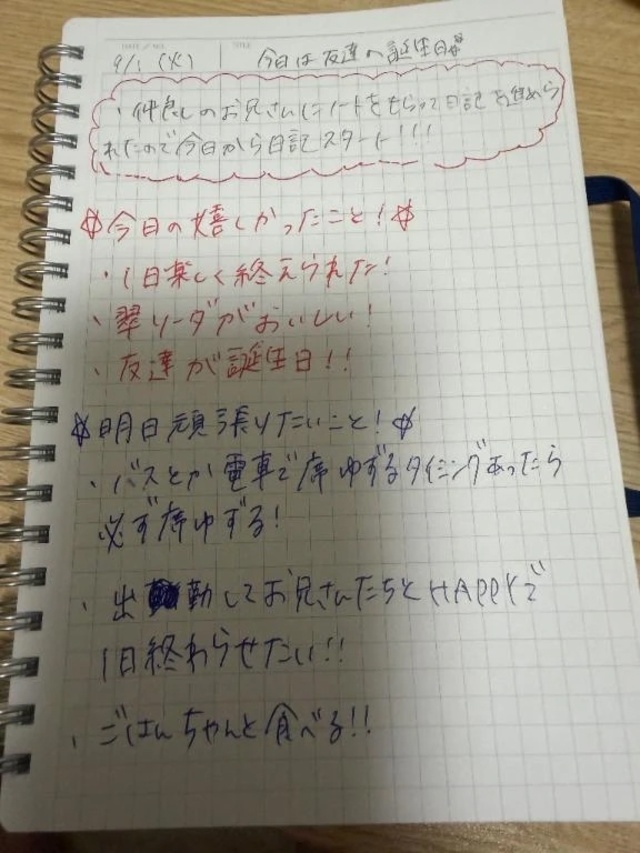 9/1 (火) 今日は友達の誕生日
・仲良しのお兄さんにノートをもらって日記を進められ
たので今日から日記スタート!!!
☆今日の嬉しかったこと!☆
・1日楽しく終えられた!
・翠リーダがおいしい!
・友達が誕生日!!
☆明日頑張りたいこと!☆
・バスとか電車で席ゆずるタイミングあったら
必ず席ゆずる!
・出勤してお兄さんたちとHAPPYで
1日終わらせたい!!
・ごはんちゃんと食べる!!